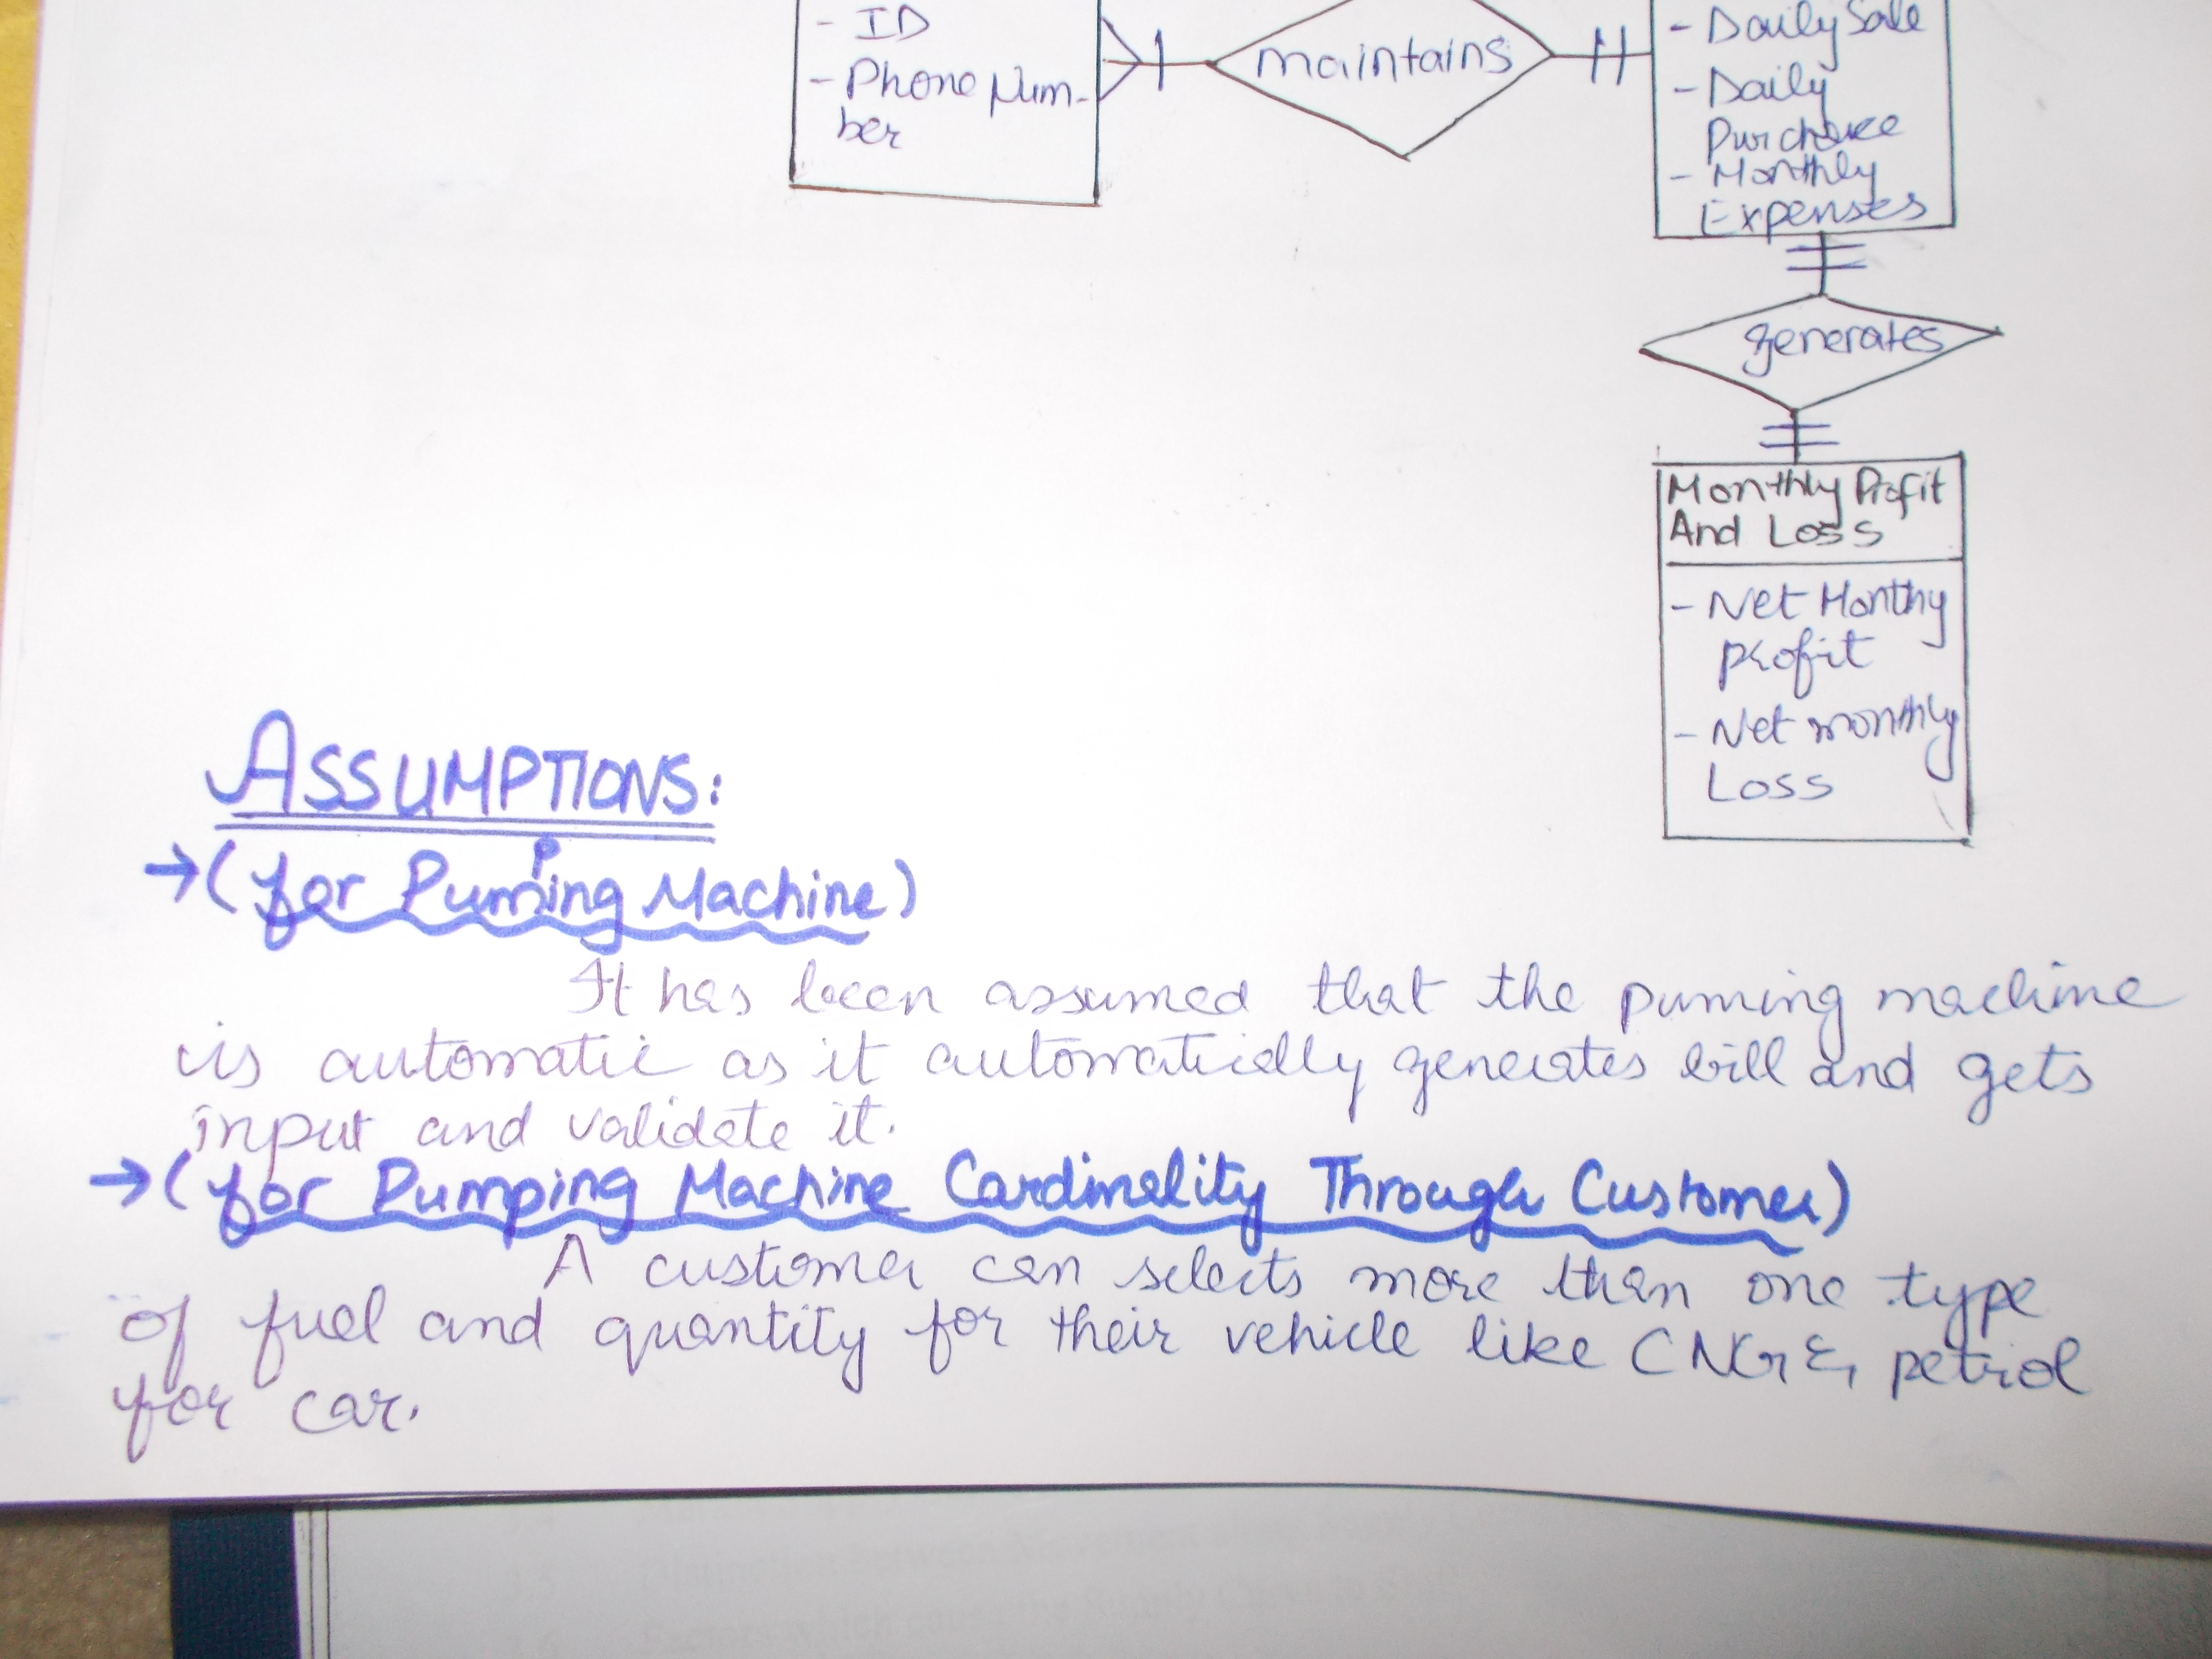 - ID
- Phone Num-
ber
maintains
- Daily Sale
- Daily
Purchase
- Monthly
Expenses
generates
Monthly Profit
And Loss
- Net Monthy
profit
- Net monthly
Loss
ASSUMPTIONS:
→(for Pumping Machine)
It has been assumed that the puming machine
is automatic as it automatically generates bill and gets
input and validate it.
→(for Pumping Machine Cardinality Through Customer)
A customer can selects more than one type
of fuel and quantity for their vehicle like CNG & petrol
for car.
3.5 Distinction between Movement along